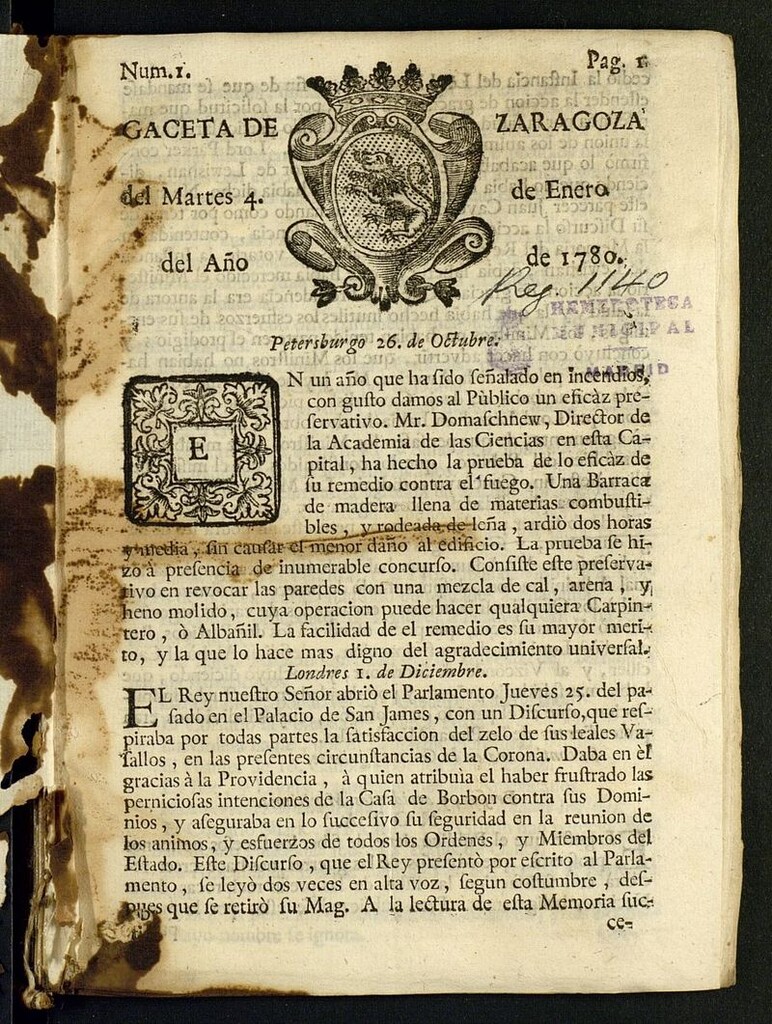 Num.1. Pag. 1.
GACETA DE ZARAGOZA
del Martes 4. de Enero
del Año de 1780.
Reg. 1140
HEMEROTECA
MUNICIPAL
MADRID
Petersburgo 26. de Octubre.
EN un año que ha ſido ſeñalado en incendios,
con guſto damos al Pùblico un eficàz pre-
ſervativo. Mr. Domaſchnew, Director de
la Academia de las Ciencias en eſta Cà-
pital, ha hecho la prueba de lo eficàz de
ſu remedio contra el fuego. Una Barraca
de madera llena de materias combuſti-
bles, y rodeada de leña, ardiò dos horas
y media, ſin cauſar el menor daño al edificio. La prueba ſe hi-
zo à preſencia de inumerable concurſo. Conſiſte eſte preſerva-
tivo en revocar las paredes con una mezcla de cal, arena, y
heno molido, cuya operacion puede hacer qualquiera Carpin-
tero, ò Albañil. La facilidad de el remedio es ſu mayor meri-
to, y la que lo hace mas digno del agradecimiento univerſal.
Londres 1. de Diciembre.
EL Rey nueſtro Señor abriò el Parlamento Jueves 25. del pa-
ſado en el Palacio de San James, con un Diſcurſo, que reſ-
piraba por todas partes la ſatisfaccion del zelo de ſus leales Va-
ſallos, en las preſentes circunſtancias de la Corona. Daba en èl
gracias à la Providencia, à quien atribuìa el haber fruſtrado las
pernicioſas intenciones de la Caſa de Borbon contra ſus Domi-
nios, y aſeguraba en lo ſucceſivo ſu ſeguridad en la reunion de
los animos, y esfuerzos de todos los Ordenes, y Miembros del
Eſtado. Eſte Diſcurſo, que el Rey preſentò por eſcrito al Parla-
mento, ſe leyò dos veces en alta voz, ſegun coſtumbre, deſ-
pues que ſe retirò ſu Mag. A la lectura de eſta Memoria ſuc-
ce-